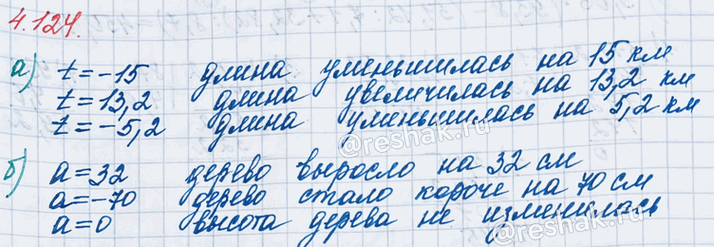 4.124.
а) t = -15 длина уменьшилась на 15 км
t = 13,2 длина увеличилась на 13,2 км
t = -5,2 длина уменьшилась на 5,2 км
@reshak.ru
б) a = 32 дерево выросло на 32 см
a = -70 дерево стало короче на 70 см
a = 0 высота дерева не изменилась